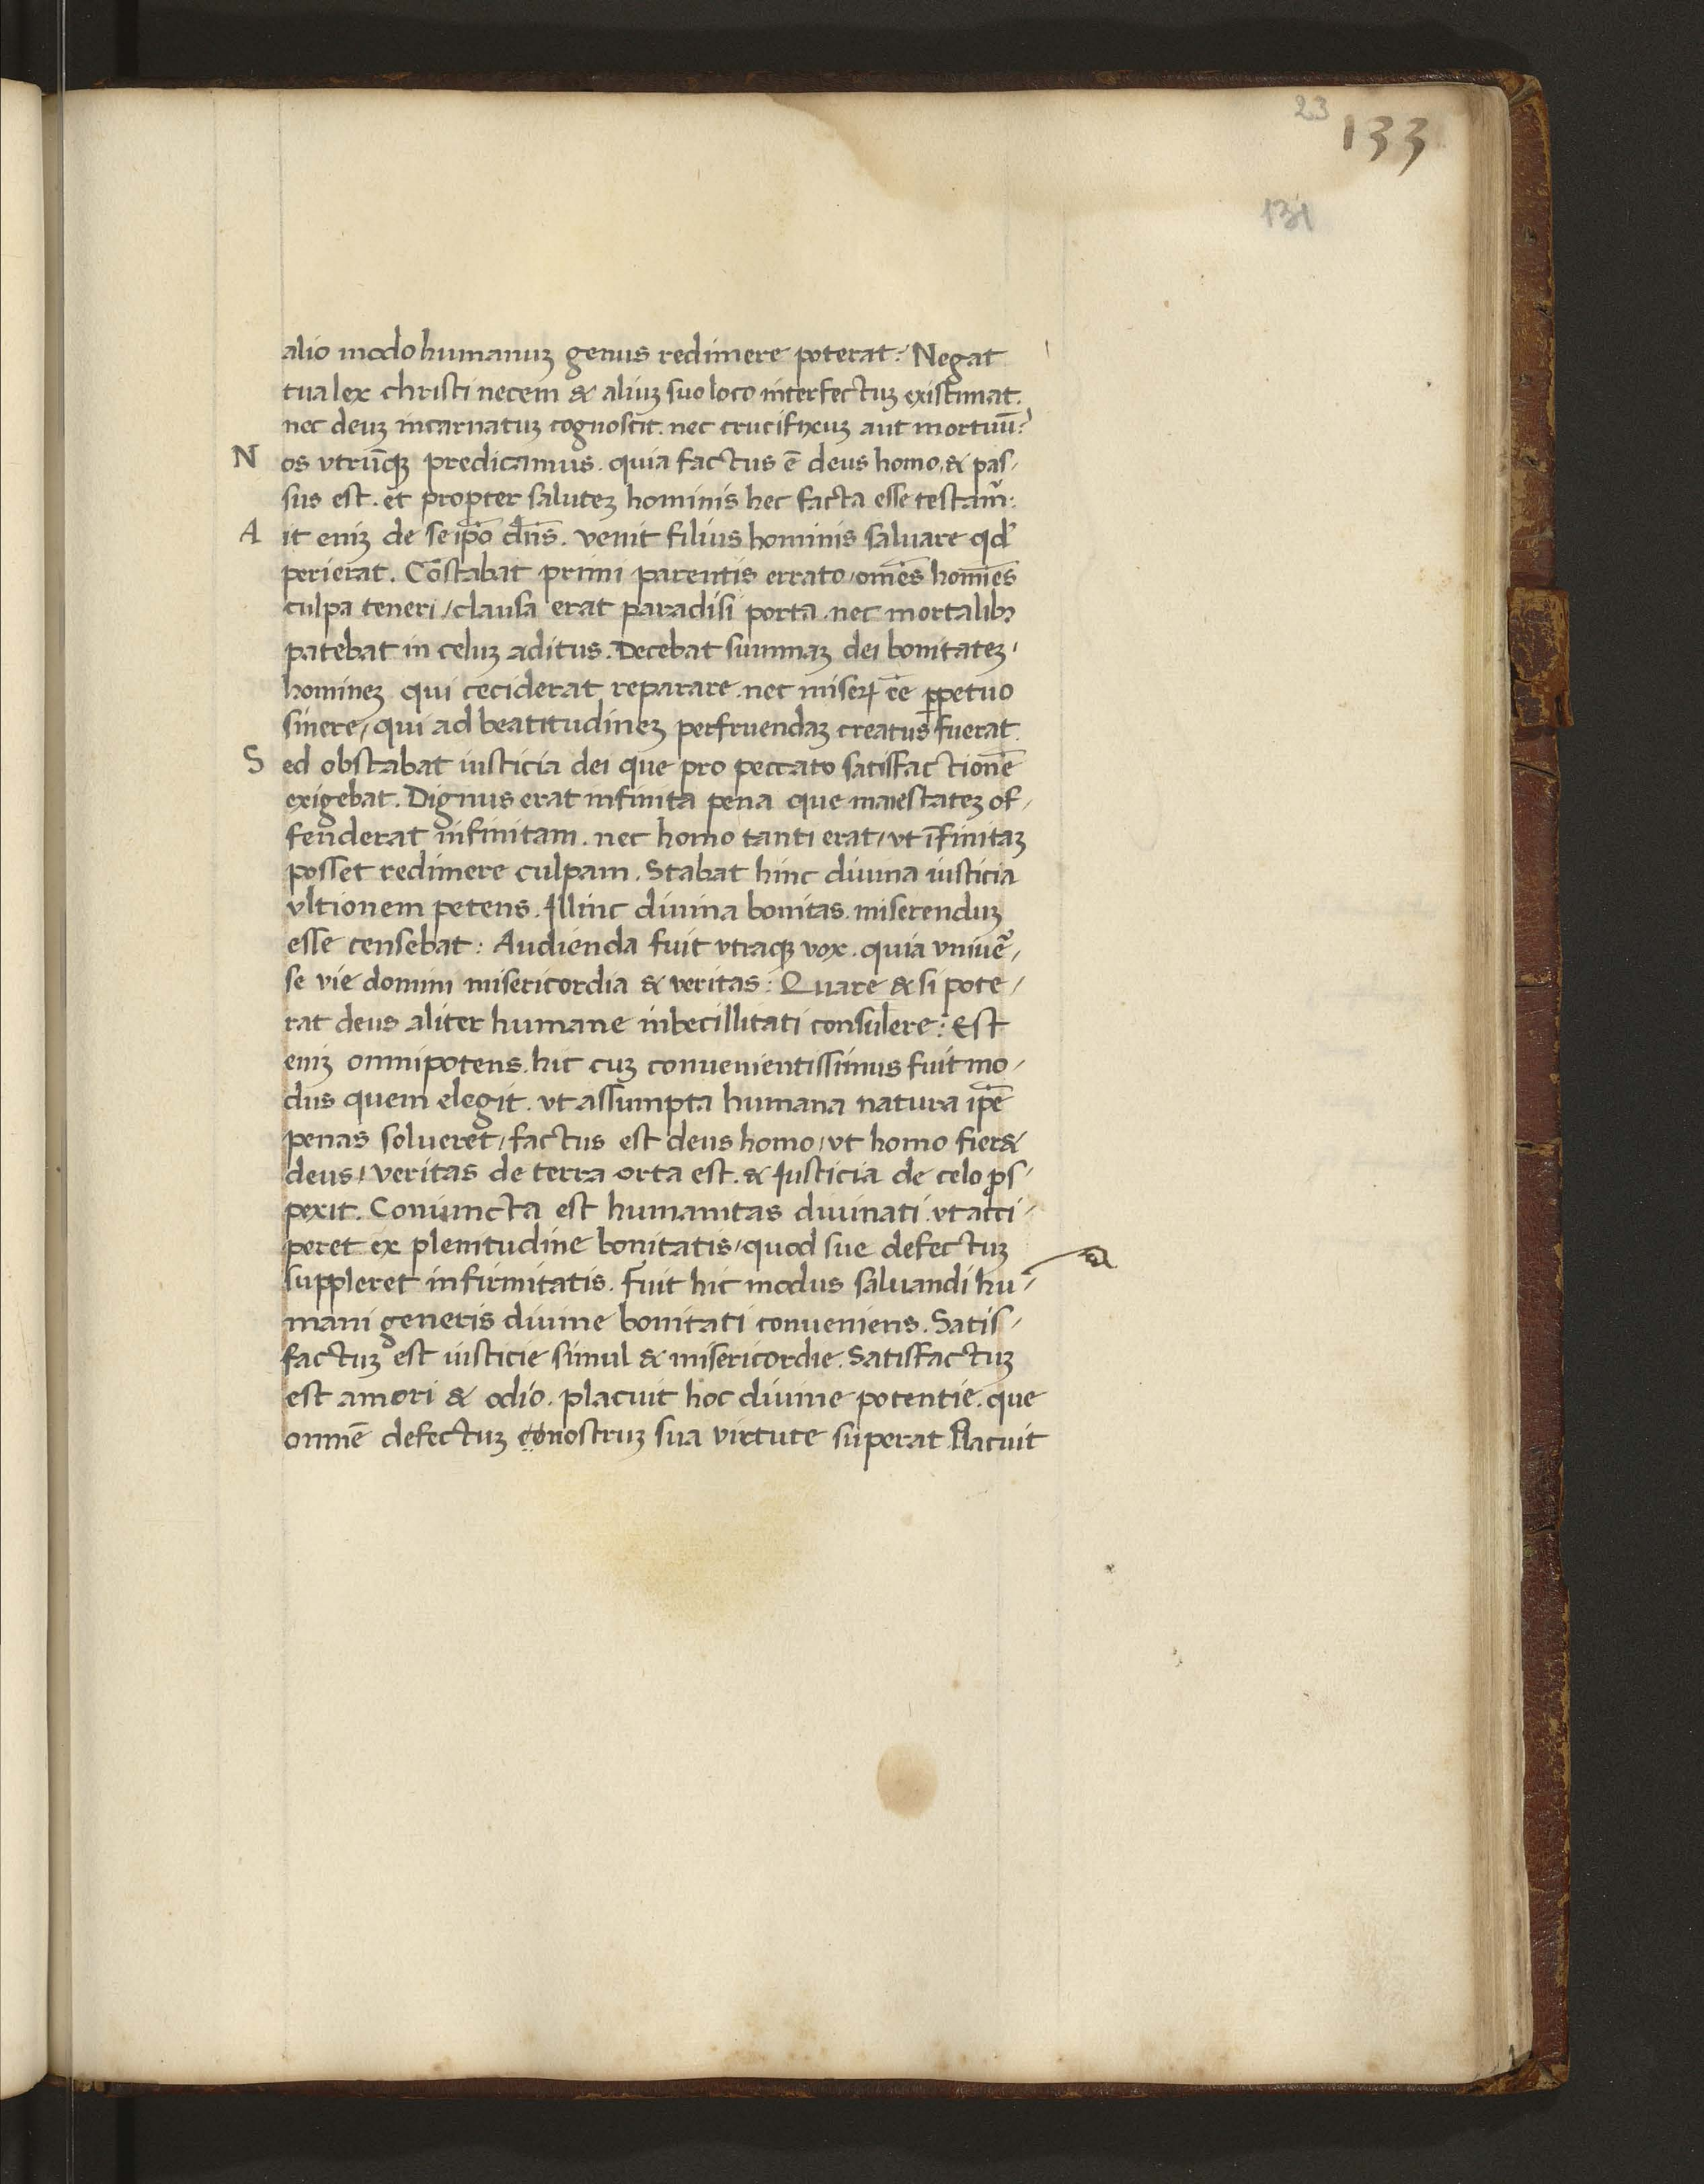 23
133
131
alio modo humanuꝫ genus redimere poterat. Negat
tua lex christi necem & aliuꝫ suo loco interfectuꝫ existimat.
nec deuꝫ incarnatuꝫ cognoscit. nec crucifixuꝫ aut mortuū?
Nos vtrūqꝫ predicamus. quia factus ē deus homo, & pas/
sus est. et propter saluteꝫ hominis hec facta esse testam̄:
Ait eniꝫ de seip̄o dn̄s. venit filius hominis saluare qd'
perierat. Cōstabat primi parentis errato, om̄es homīes
culpa teneri, clausa erat paradisi porta. nec mortalibꝫ
patebat in celuꝫ aditus. Decebat summaꝫ dei bonitateꝫ,
homineꝫ qui ceciderat reparare. nec miseꝝ ēe ꝑpetuo
sinere, qui ad beatitudineꝫ perfruendaꝫ creatus fuerat.
Sed obstabat iusticia dei que pro peccato satisfactionē
exigebat. Dignus erat infinita pena que maiestateꝫ of/
fenderat infinitam. nec homo tanti erat, vt īfinitaꝫ
posset redimere culpam. Stabat hinc diuina iusticia
vltionem petens. Illinc diuina bonitas. miserenduꝫ
esse censebat: Audienda fuit vtraqꝫ vox. quia vniue᷑/
se vie domini misericordia & veritas: Quare & si pote/
rat deus aliter humane inbecillitati consulere: Est
eniꝫ omnipotens. hic cuꝫ conuenientissimus fuit mo/
dus quem elegit. vt assumpta humana natura ip̄e
penas solueret, factus est deus homo, vt homo fier&
deus, veritas de terra orta est. & Iusticia de celo ꝓs/
pexit. Coniuncta est humanitas diuinati. vt acci/
peret ex plenitudine bonitatis, quod sue defectuꝫ
suppleret infirmitatis. Fuit hic modus saluandi hu/
mani generis diuine bonitati conueniens. Satis/
factuꝫ est iusticie simul & misericordie. Satisfactuꝫ
est amori & odio. placuit hoc diuine potentie. que
omnē defectuꝫ nostruꝫ sua virtute superat. Placuit